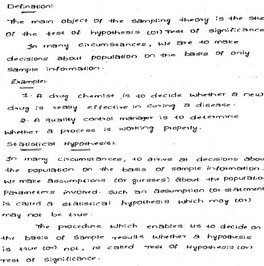 Defination:
The main object of the sampling theory is the stud
of the test of hypothesis (or) Test of significance
In many circumstances, we are to make
decisions about population on the basis of only
sample information.
Example:
1. A drug chemist is to decide whether a new
drug is really effective in curing a disease.
2. A quality control manager is to determine
whether a process is working properly.
Statistical Hypothesis:
In many circumstances, to arrive at decisions about
the population on the basis of sample information,
we make assumptions (or guesses) about the population
parameters involved. Such an assumption (or) statement
is called a statistical hypothesis which may (or)
may not be true.
The procedure which enables us to decide on
the basis of sample results whether a hypothesis
is true (or) not, is called Test of Hypothesis (or)
Test of significance.